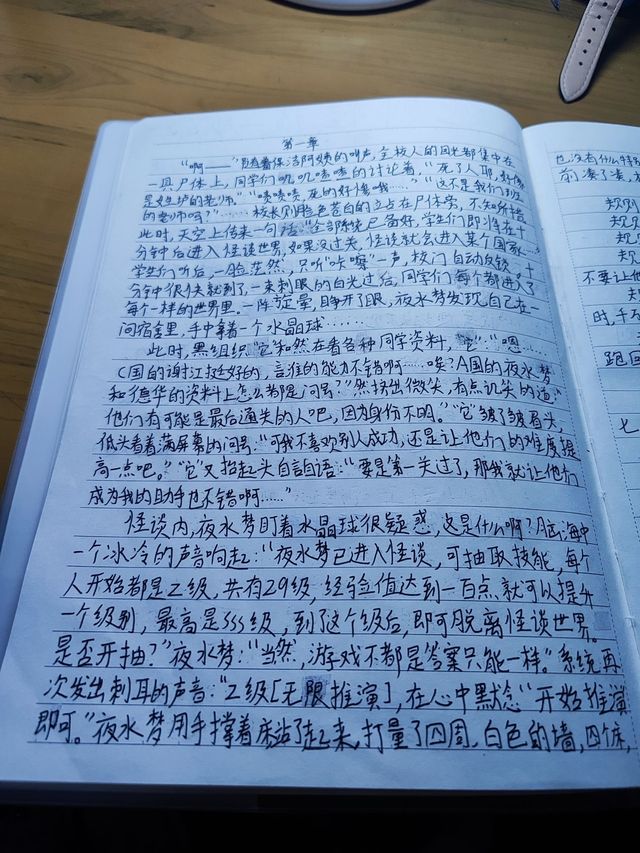 第一章
“啊——”随着保洁阿姨的叫声,全校人的目光都集中在
一具尸体上,同学们叽叽喳喳的讨论着,“死了人耶,好像
是女生的老师。”“啧啧啧,死的好惨哦……”“这不是我们班
的老师吗?”……校长则脸色苍白的立在尸体旁,不知所措
此时,天空上传来一句话:“全部系统已备好,学生们即将在十
分钟后进入怪谈世界,如果没过关,怪谈就会进入某个国家…”
学生们听后,一脸茫然,只听“咔嚓”一声,校门自动反锁。十
分钟很快就到了,一束刺眼的白光过后,同学们每个都进入了
每个一样的世界里。一阵旋晕,睁开了眼,夜水梦发现自己在一
间宿舍里,手中拿着一个水晶球……
此时,黑组织“它”和然在看各种同学资料,“它”:“嗯……
C国的谢江挺好的,言淮的能力不错啊……唉?A国的夜水梦
和德华的资料上怎么都是问号?”然挤出微笑,有点讥笑的道:“
他们有可能是最后通关的人吧,因为身份不明。”“它”皱了皱眉头,
低头看着满屏幕的问号:“可我不喜欢别人成功,还是让他们的难度提
高一点吧。”“它”又抬起头自言自语:“要是第一关过了,那我就让他们
成为我的助手也不错啊……”
怪谈内,夜水梦盯着水晶球很疑惑,这是什么啊?脑海中
一个冰冷的声音响起:“夜水梦已进入怪谈,可抽取技能,每个
人开始都是Z级,共有29级,经验值达到一百点就可以提升
一个级别,最高是SSS级,到了这个级后,即可脱离怪谈世界。
是否开抽?”夜水梦:“当然,游戏不都是答案只能一样。”系统再
次发出刺耳的声音:“Z级[无限推演],在心中默念“开始推演
即可。”夜水梦用手撑着床站了起来,打量了四周,白色的墙,四个床,
也没有什么特
前凑了凑,
规则
规
规
规
不要让他
时,千
跑回
七